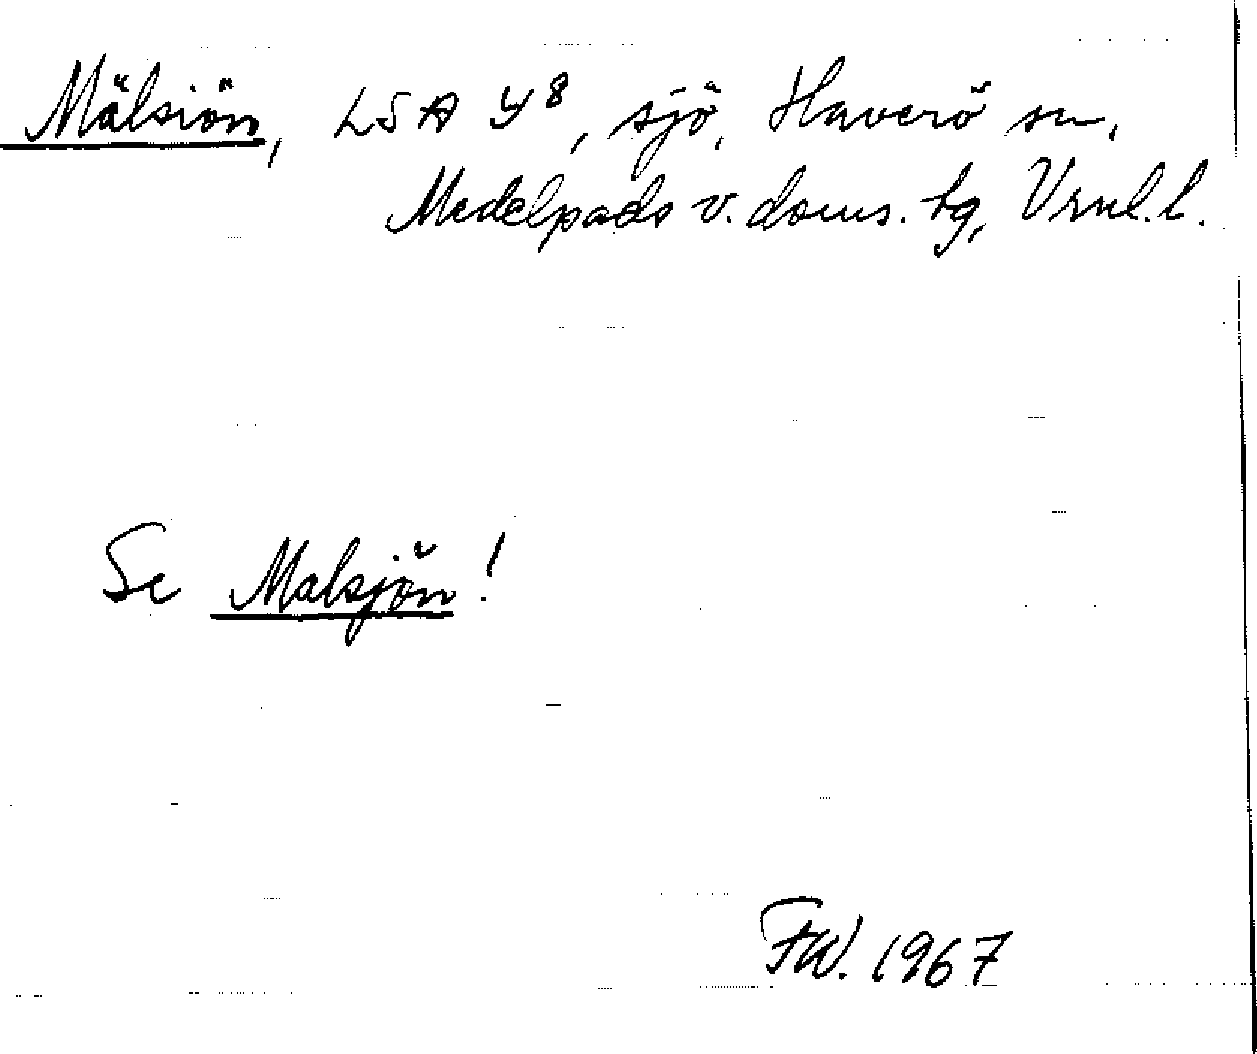 Mälsiön, LSA Y8, sjö, Haverö sn,
Medelpads v. doms. tg, Vrnl. l.
Se Malsjön!
FW. 1967